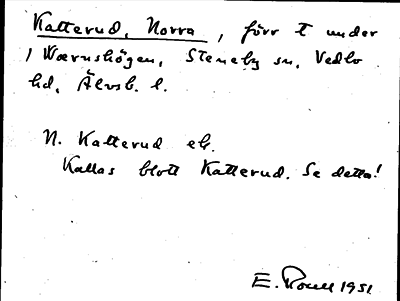 Katterud, Norra, förr t under
1 Wærnshögen, Steneby sn, Vedbo
hd, Älvsb. l.
N. Katterud el.
Kallas blott Katterud. Se detta!
E. 1951